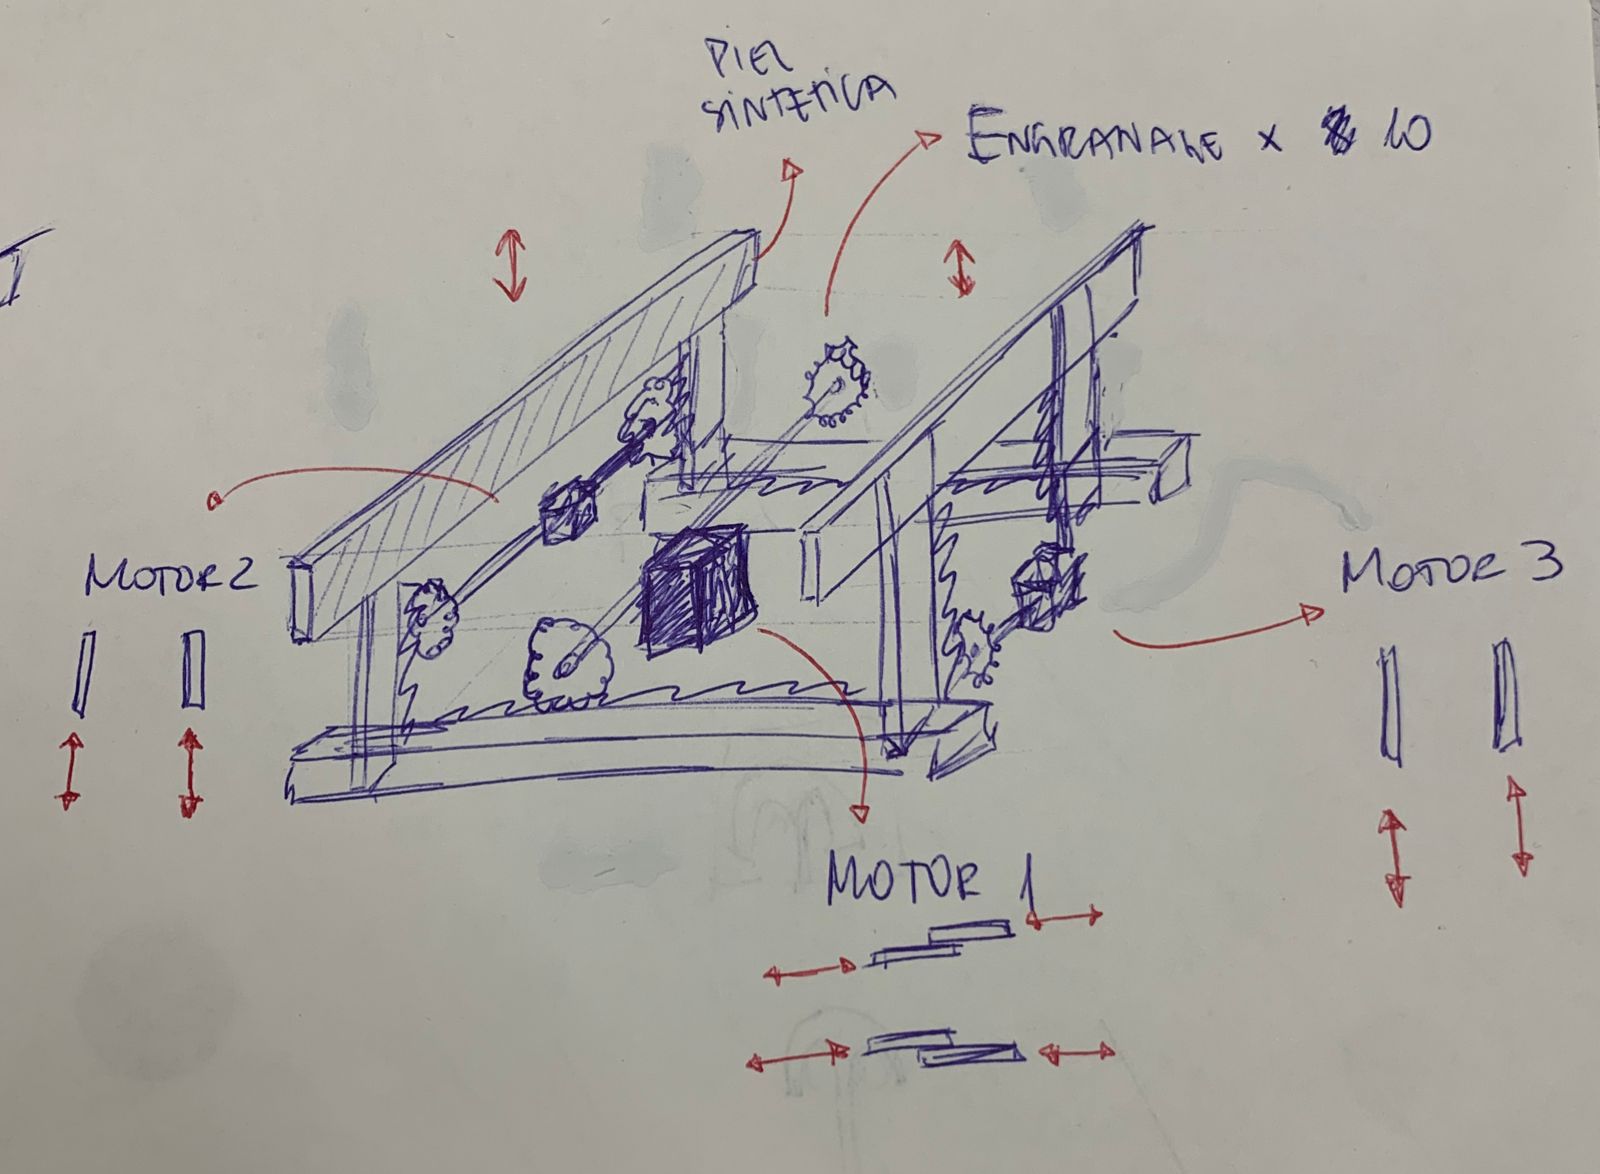 PIEL
SINTETICA
ENGRANALE x 10
MOTOR 2
MOTOR 3
MOTOR 1